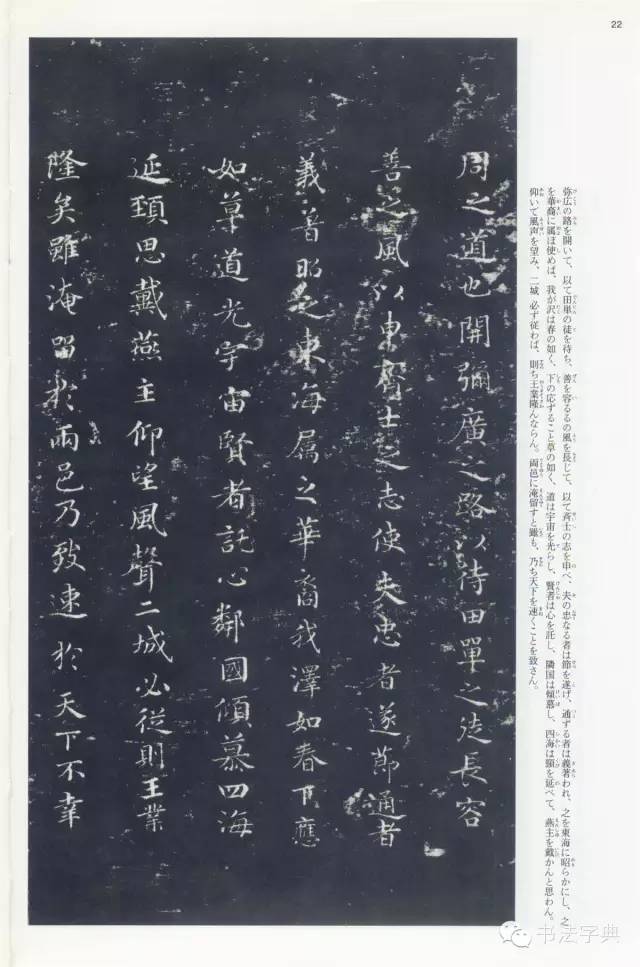 22
弥広の路を開いて、以て田単の徒を待ち、善を容るるの風を長じて、以て斉士の志を申べ、夫の忠なる者は節を遂げ、通ずる者は義著われ、之を東海に昭らかにし、之
を華裔に属ぼ使めば、我が沢は春の如く、下の応ずること草の如く、道は宇宙を光らし、賢者は心を託し、隣国は傾慕し、四海は頸を延べて、燕主を戴かんと思わん。
仰いで風声を望み、二城 必ず従わば、則ち王業隆んならん。両邑に淹留すと雖も、乃ち天下を速くことを致さん。
周之道也開彌廣之路以待田單之徒長容
善之風以申齊士之志使夫忠者遂節通者
義著昭之東海属之華裔我澤如春下應
如草道光宇宙賢者託心鄰國傾慕四海
延頸思戴燕主仰望風聲二城必從則王業
隆矣雖淹留於兩邑乃致速於天下不幸
书法字典